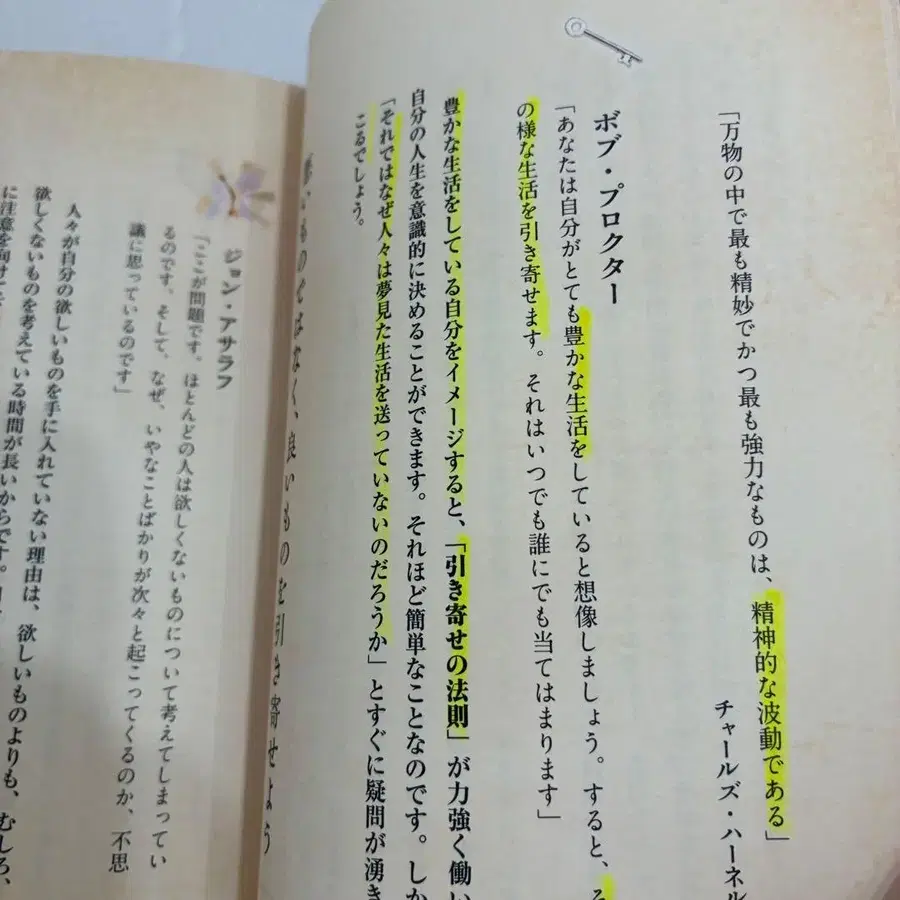 「万物の中で最も精妙でかつ最も強力なものは、精神的な波動である」
チャールズ・ハーネル
ボブ・プロクター
「あなたは自分がとても豊かな生活をしていると想像しましょう。すると、そ
の様な生活を引き寄せます。それはいつでも誰にでも当てはまります」
豊かな生活をしている自分をイメージすると、「引き寄せの法則」が力強く働い
自分の人生を意識的に決めることができます。それほど簡単なことなのです。しか
「それではなぜ人々は夢見た生活を送っていないのだろうか」とすぐに疑問が湧き
こるでしょう。
いものではなく、良いものを引き寄せよう
ジョン・アサラフ
「ここが問題です。ほとんどの人は欲しくないものについて考えてしまってい
るのです。そして、なぜ、いやなことばかりが次々と起こってくるのか、不思
議に思っているのです」
人々が自分の欲しいものを手に入れていない理由は、欲しいものよりも、むしろ、
欲しくないものを考えている時間が長いからです。
に注意を向けて